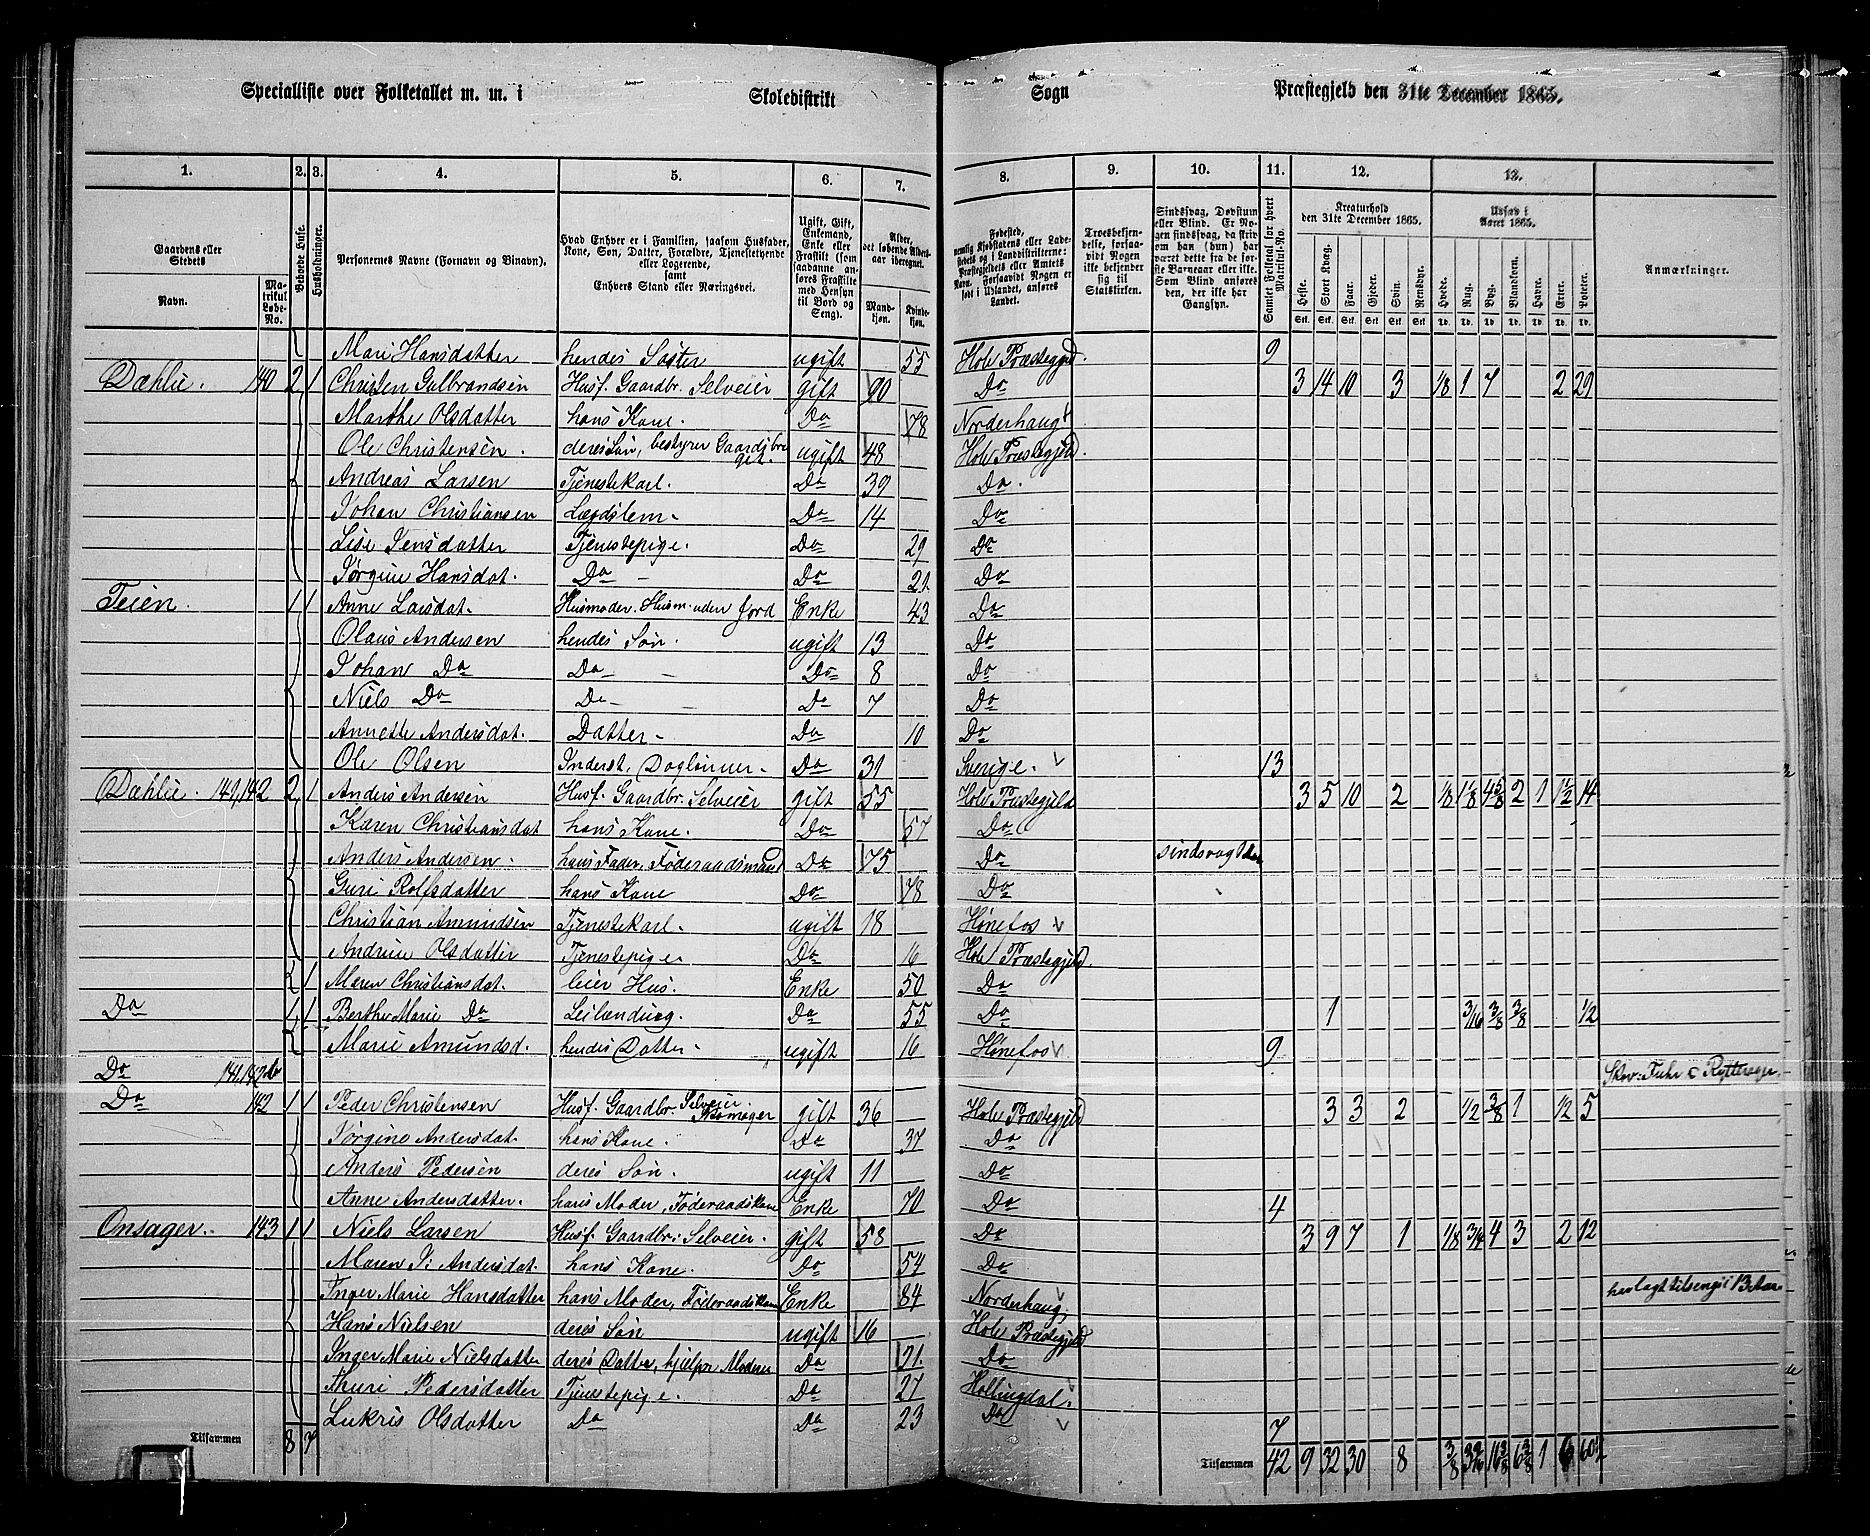 Specialliste over Folketallet m. m. i Skoledistrikt Sogn Præstegjeld den 31te December 1865.
1. 2. 3. 4. 5. 6. 7. 8. 9. 10. 11. 12. 13.
Gaardens eller Stedets
Navn.
Matrikul Løbe-No.
Beboede Huse.
Husholdninger.
Personernes Navne (Fornavn og Binavn).
Hvad Enhver er i Familien, saasom Husfader, Kone, Søn, Datter, Forældre, Tjenestetyende eller Logerende, samt Enhvers Stand eller Næringsvei.
Ugift, Gift, Enkemand, Enke eller Fraskilt (som saadanne anføres Fraskilte med Hensyn til Bord og Seng).
Alder, det løbende Aldersaar iberegnet.
Mandkjøn. Kvindekjøn.
Fødested, nemlig Kjøbstadens eller Ladestedets og i Landdistrikterne: Præstegjeldets eller Amtets Navn. Forsaavidt Nogen er født i Udlandet, anføres Landet.
Troesbekjendelse, forsaavidt Nogen ikke bekjender sig til Statskirken.
Sindssvag, Døvstum eller Blind. Er Nogen sindssvag, da skriv om han (hun) har været dette fra de første Barneaar eller ikke. Som Blind ansøres den, der ikke har Gangsyn.
Samlet Folketal for hvert Matrikul-No.
Kreaturhold den 31te December 1865.
Heste. Stort Kvæg. Faar. Gjeder. Svin. Rensdyr.
Udsæd i Aaret 1865.
Hvede. Rug. Byg. Blandkorn. Havre. Erter. Poteter.
Anmærkninger.
Mari Hansdatter hendes Søster ugift 55 Hole Præstegjeld. 9
Dæhlie. 140 2 1 Christen Gulbrandsen Husf. Gaardbr. Selveier gift 90 Do 3 14 10 3 1/8 1 7 2 29
Marthe Olsdatter hans Kone. Do 78 Norderhaug
Ole Christensen. deres Søn, bestyrer Gaardsbruget. ugift 48 Hole Præstegjeld.
Andreas Larsen Tjenestekarl. Do 39 Do.
Johan Christiansen Lægdslem. Do 14 Do
Lise Jensdatter Tjenestepige. Do 29 Do
Jørgine Hansdat. Do Do 21 Do
Teien. 1 1 Anne Larsdat. Husmoder. Husm. uden Jord Enke 43 Do
Olaus Andersen hendes Søn. ugift 13 Do
Johan Do Do Do 8 Do
Niels Do Do Do 7 Do
Annette Andersdat. Datter Do 10 Do
Ole Olsen Inderst, Daglønner. Do 31 Sverige. 13
Dæhlie. 141,142 2 1 Anders Andersen Husf. Gaardbr. Selveier gift 55 Hole Præstegjeld 3 5 10 2 1/8 1 1/8 4 5/8 2 1 1 1/2 14
Karen Christiansdat hans Kone. Do 57 Do
Anders Andersen. hans Fader, Føderaadsmand Do 75 Do
Guri Rolfsdatter hans Kone Do 78 Do
Christian Amundsen Tjenestekarl. ugift 18 Hønefos
Andrine Olsdatter Tjenestepige Do 16 Hole Præstegjeld.
1 Maren Christiansdat. leier Hus. Enke 50 Do
Do 1 1 Berthe Marie Do Leilending. Do 55 Do 1 3/16 3/8 3/8 1/2
Marie Amundsd. hendes Datter ugift 16 Hønefos 9
Do 141,142
Do 142 1 1 Peder Christensen Husf. Gaardbr. Selveier Skomager gift 36 Hole Præstegjeld 3 3 2 1/2 3/8 1 1/2 5
Jørgine Andersdat. hans Kone. Do 37 Do
Anders Pedersen deres Søn. ugift 11 Do
Anne Andersdatter. hans Moder, Føderaadskone Enke 70 Do 4
Onsager. 143 1 1 Niels Larsen Husf. Gaardbr. Selveier. gift 58 Do 3 9 7 1 1/8 3/4 4 3 2 12
Maren J. Andersdat. hans Kone. Do 54 Do
Inger Marie Hansdatter hans Moder, Føderaadskone Enke 84 Norderhaug,
Hans Nielsen deres Søn ugift 16 Hole Præstegjeld
Inger Marie Nielsdatter deres Datter, hjelper Moderen Do 21. Do
Thuri Pedersdatter Tjenestepige. Do 27 Hallingdal.
Lukris Olsdatter Do Do 23 Do 7
Tilsammen 8 7 Tilsammen 42 9 32 30 8 3/8 1